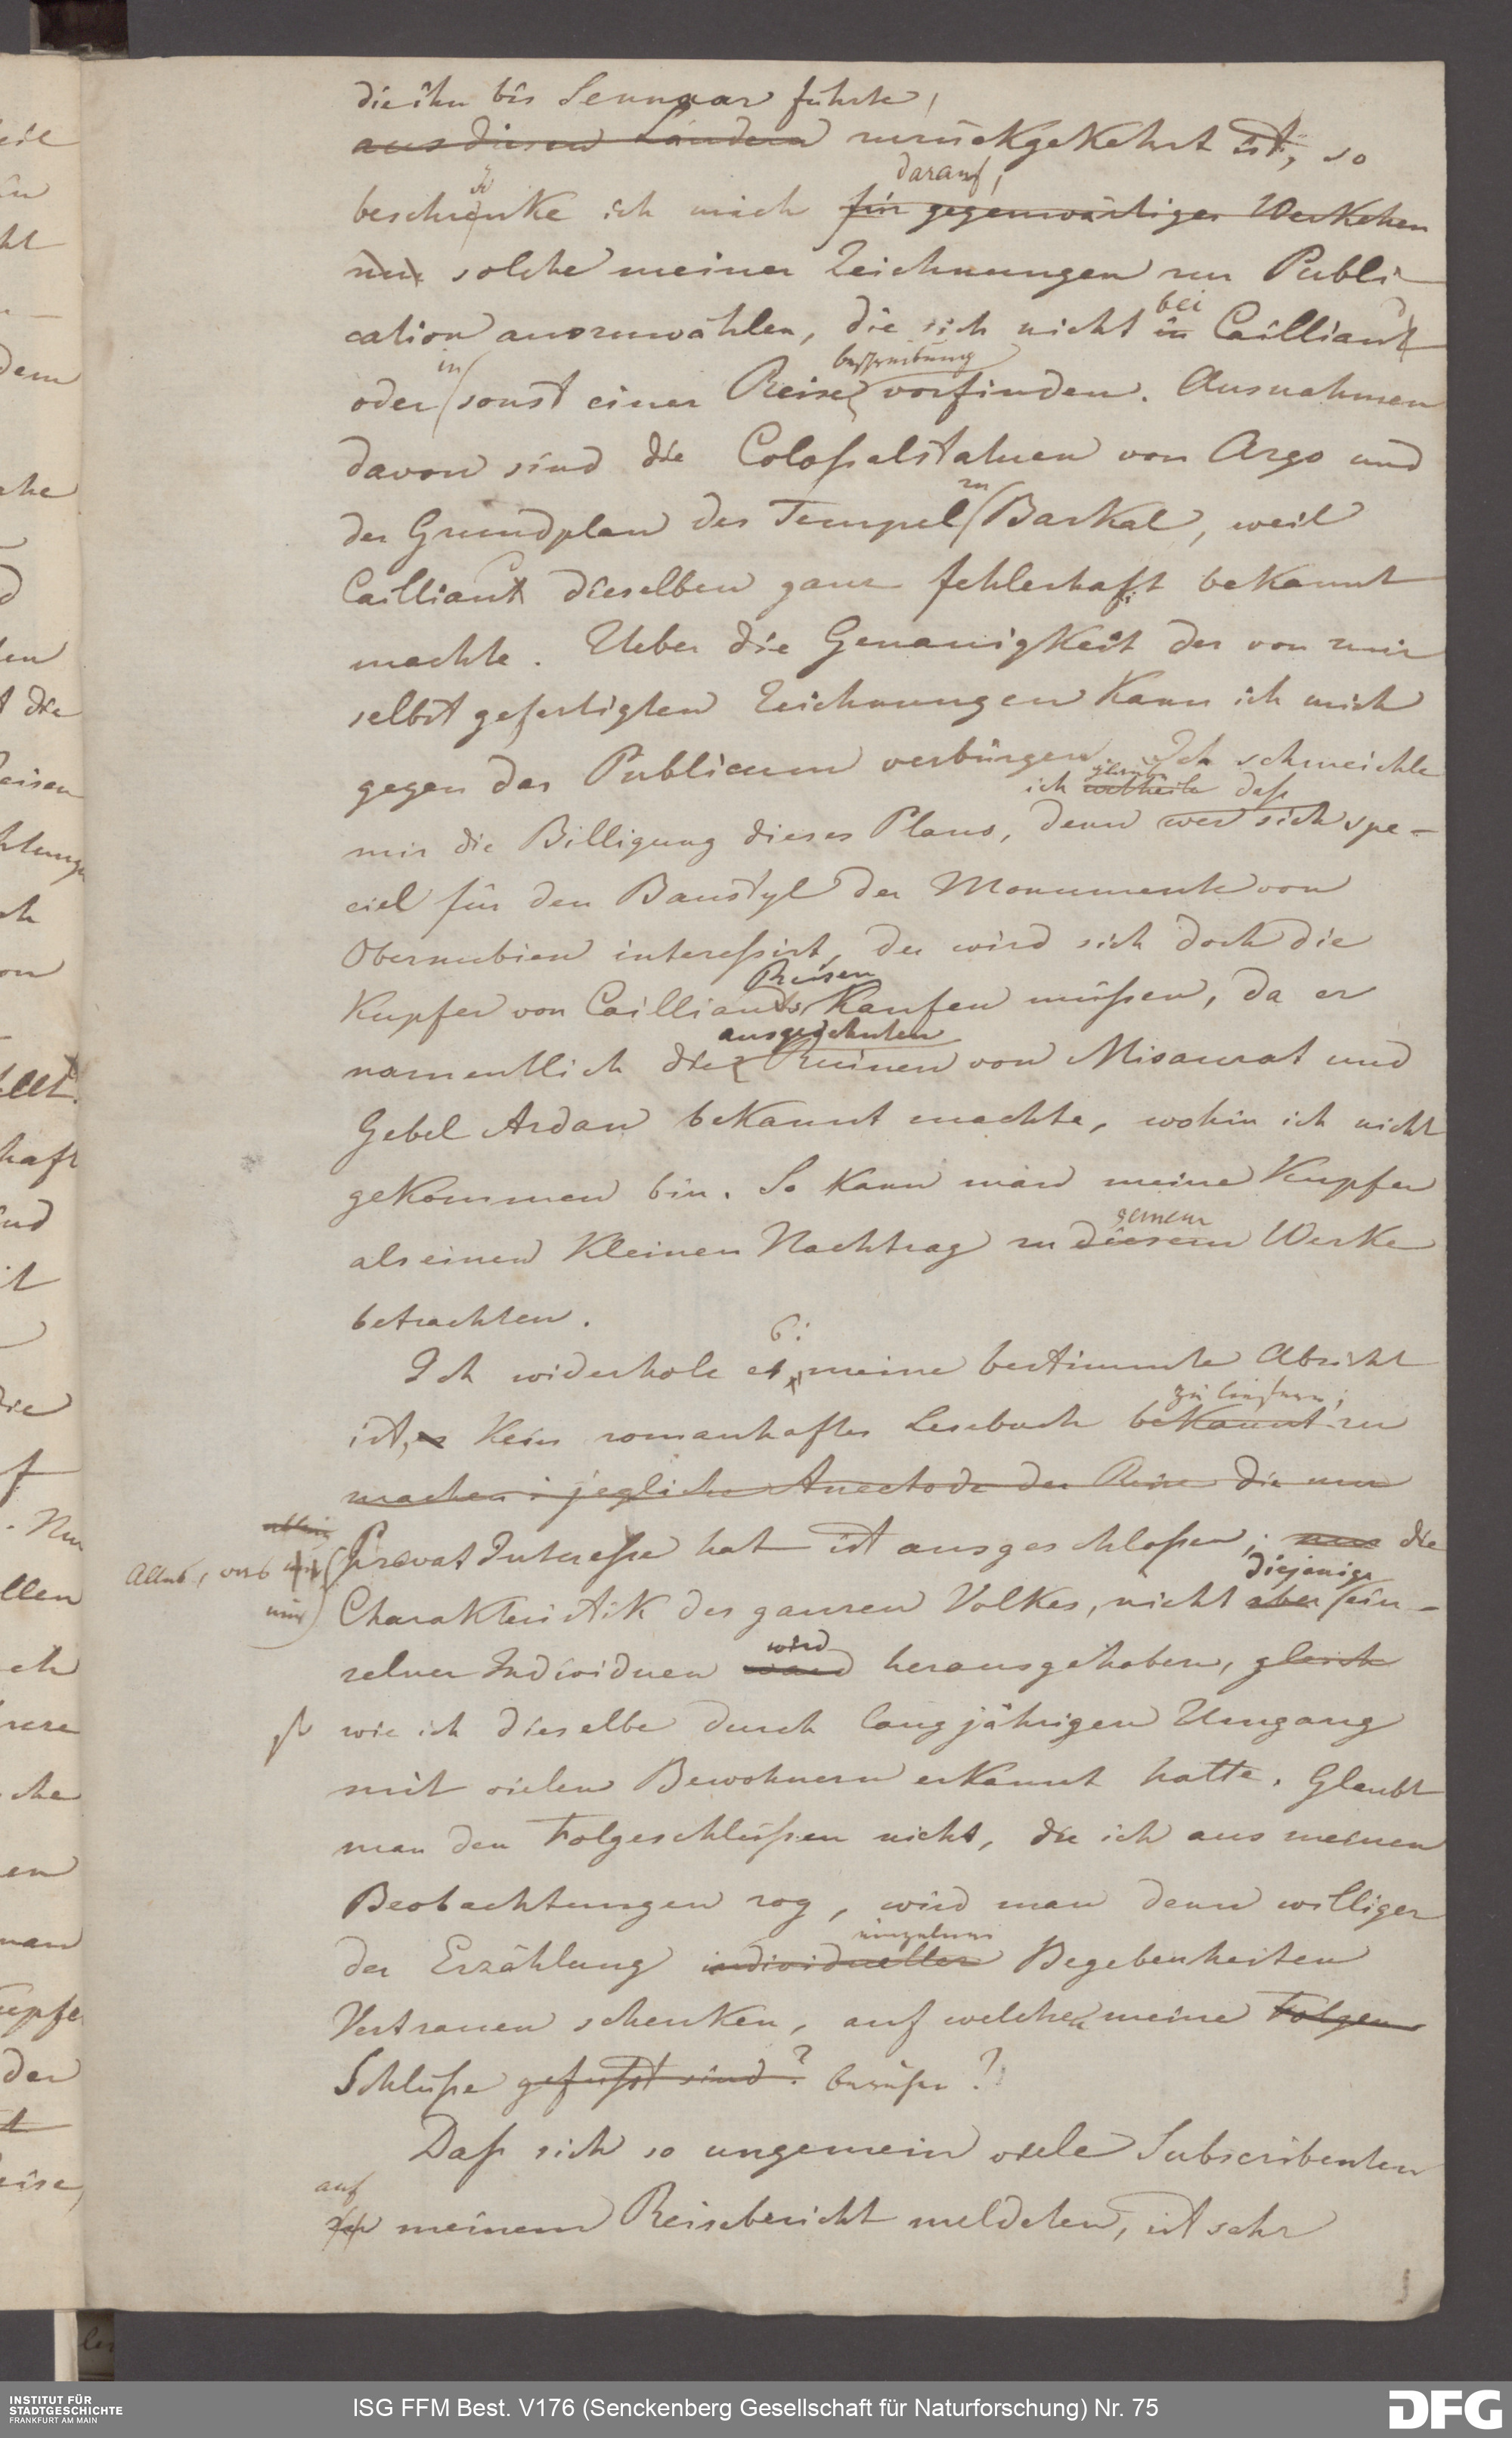 die ihn bis Sennaar führte,
aus diesen Ländern zurückgekehrt ist, so
darauf,
beschränke ich mich für gegenwärtiges Werkchen
nur solche meiner Zeichnungen zur Publi-
bei
cation auszuwählen, die sich nicht in Cailliaud
in beschreibung
oder sonst einer Reise vorfinden. Ausnahmen
davon sind die Coloßalstatuen von Argo und
zu
der Grundplan des Tempel Barkal, weil
Cailliaud dieselben ganz fehlerhaft bekannt
machte. Ueber die Genauigkeit der von mir
selbst gefertigten Zeichnungen kann ich mich
gegen das Publicum verbürgen. Ich schmeichle
ich glaube daß
mir die Billigung dieses Plans, denn wer sich spe-
ciel für den Baustyl der Monumente von
Obernubien interessirt, der wird sich doch die
Reisen
Kupfer von Cailliauds kaufen müßen, da er
ausgedehnten
namentlich die Ruinen von Misaurat und
Gebel Ardan bekannt machte, wohin ich nicht
gekommen bin. So kann man meine Kupfer
seinem
als einen kleinen Nachtrag zu diesem Werke
betrachten.
6:
Ich widerhole es, meine bestimmte Absicht
zu liefern;
ist, kein romanhaftes Lesebuch bekannt zu
machen; jegliche Anectode der Reise die nur
allein
Alles, was
Privat Interesse hat ist ausgeschloßen; nur die
diejenige
nur
Charakteristik des ganzen Volkes, nicht aber ein-
wird
zelner Individuen ward herausgehoben, gleich
wie ich dieselbe durch langjährigen Umgang
mit vielen Bewohnern erkannt hatte. Glaubt
man den Folgeschlüßen nicht, die ich aus meinen
Beobachtungen zog, wird man denn williger
einzelner
der Erzählung individueller Begebenheiten
Vertrauen schenken, auf welchen meine Folgen
Schlüße gefußt sind? beruhen?
Daß sich so ungemein viele Subscribenten
auf
zu meinem Reisebericht meldeten, ist sehr
INSTITUT FÜR
STADTGESCHICHTE
FRANKFURT AM MAIN
ISG FFM Best. V176 (Senckenberg Gesellschaft für Naturforschung) Nr. 75
DFG